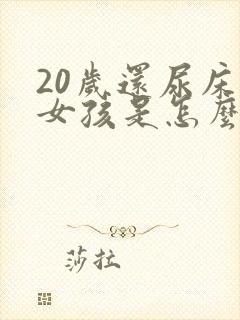 20歲還尿床
女孩是怎麼
莎拉